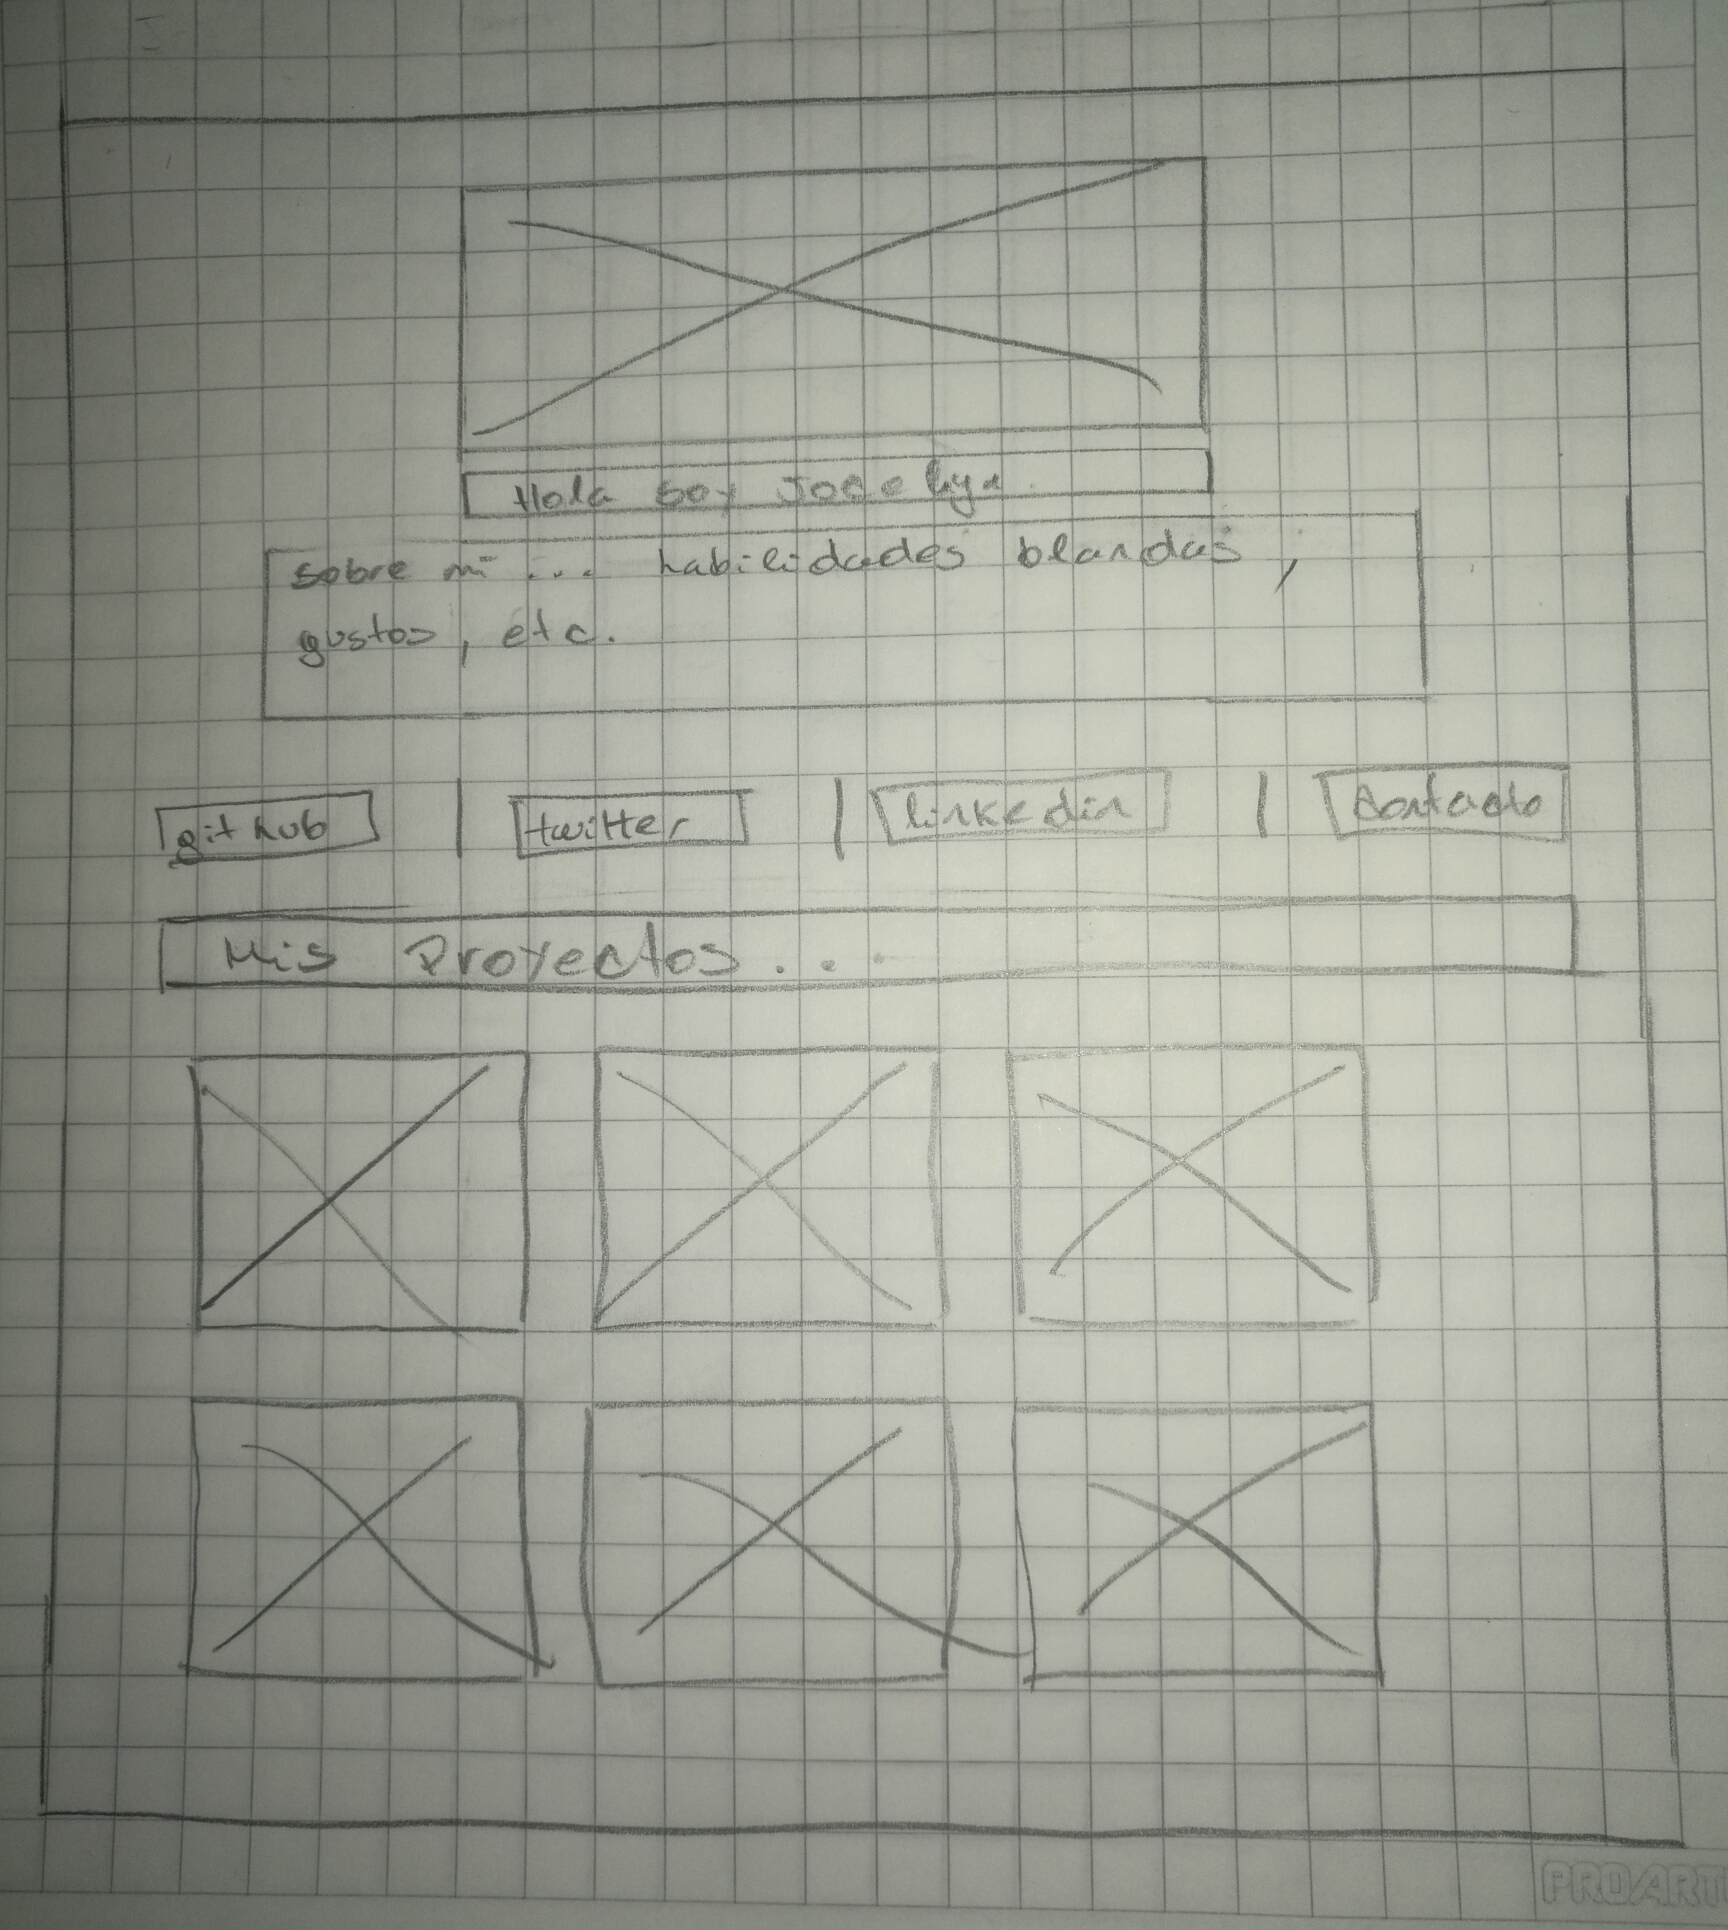 Hola soy Jocelyn.
sobre mi ... habilidades blandas,
gustos, etc.
github | twitter | linkedin | Contacto
Mis Proyectos...
PROART